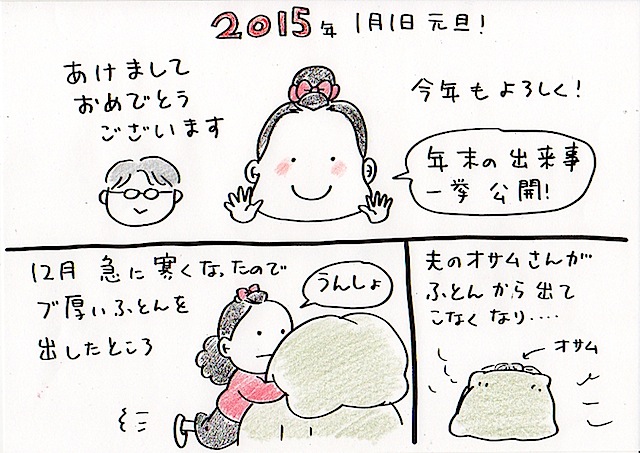 2015年 1月1日 元旦!
あけまして
おめでとう
ございます
今年もよろしく!
年末の出来事
一挙 公開!
12月 急に寒くなったので
ブ厚いふとんを
出したところ
うんしょ
夫のオサムさんが
ふとんから出て
こなくなり‥‥
オサム